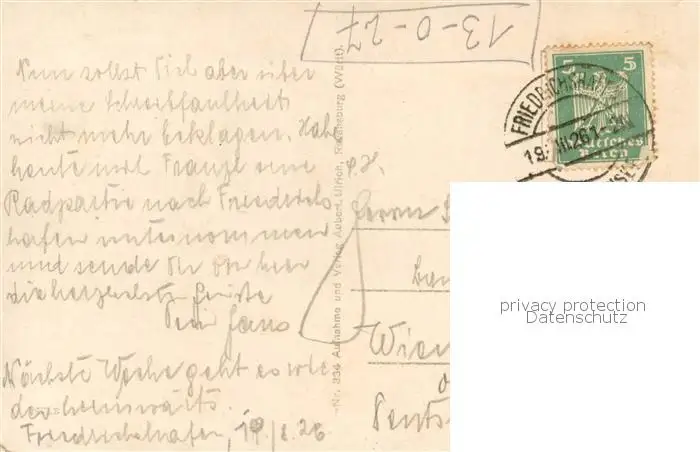 13-0-27
Nun sollst Dich aber über
meine Schreibfaulheit
nicht mehr beklagen. Habe
heute mit Franzl eine
Radpartie nach Friedrichs-
hafen unternommen
und sende Dir von hier
die herzlichsten Grüße
Dein Hans
Nächste Woche geht es wie-
der heimwärts.
Friedrichshafen, 19/8.26
Nr. 334 Aufnahme und Verlag Aubert Ulrich, Ravensburg (Württ).
5 5
Deutsches
Reich
FRIEDRICHSHAFEN
19. VIII.26
S.H.
Herrn
Wien
privacy protection
Datenschutz